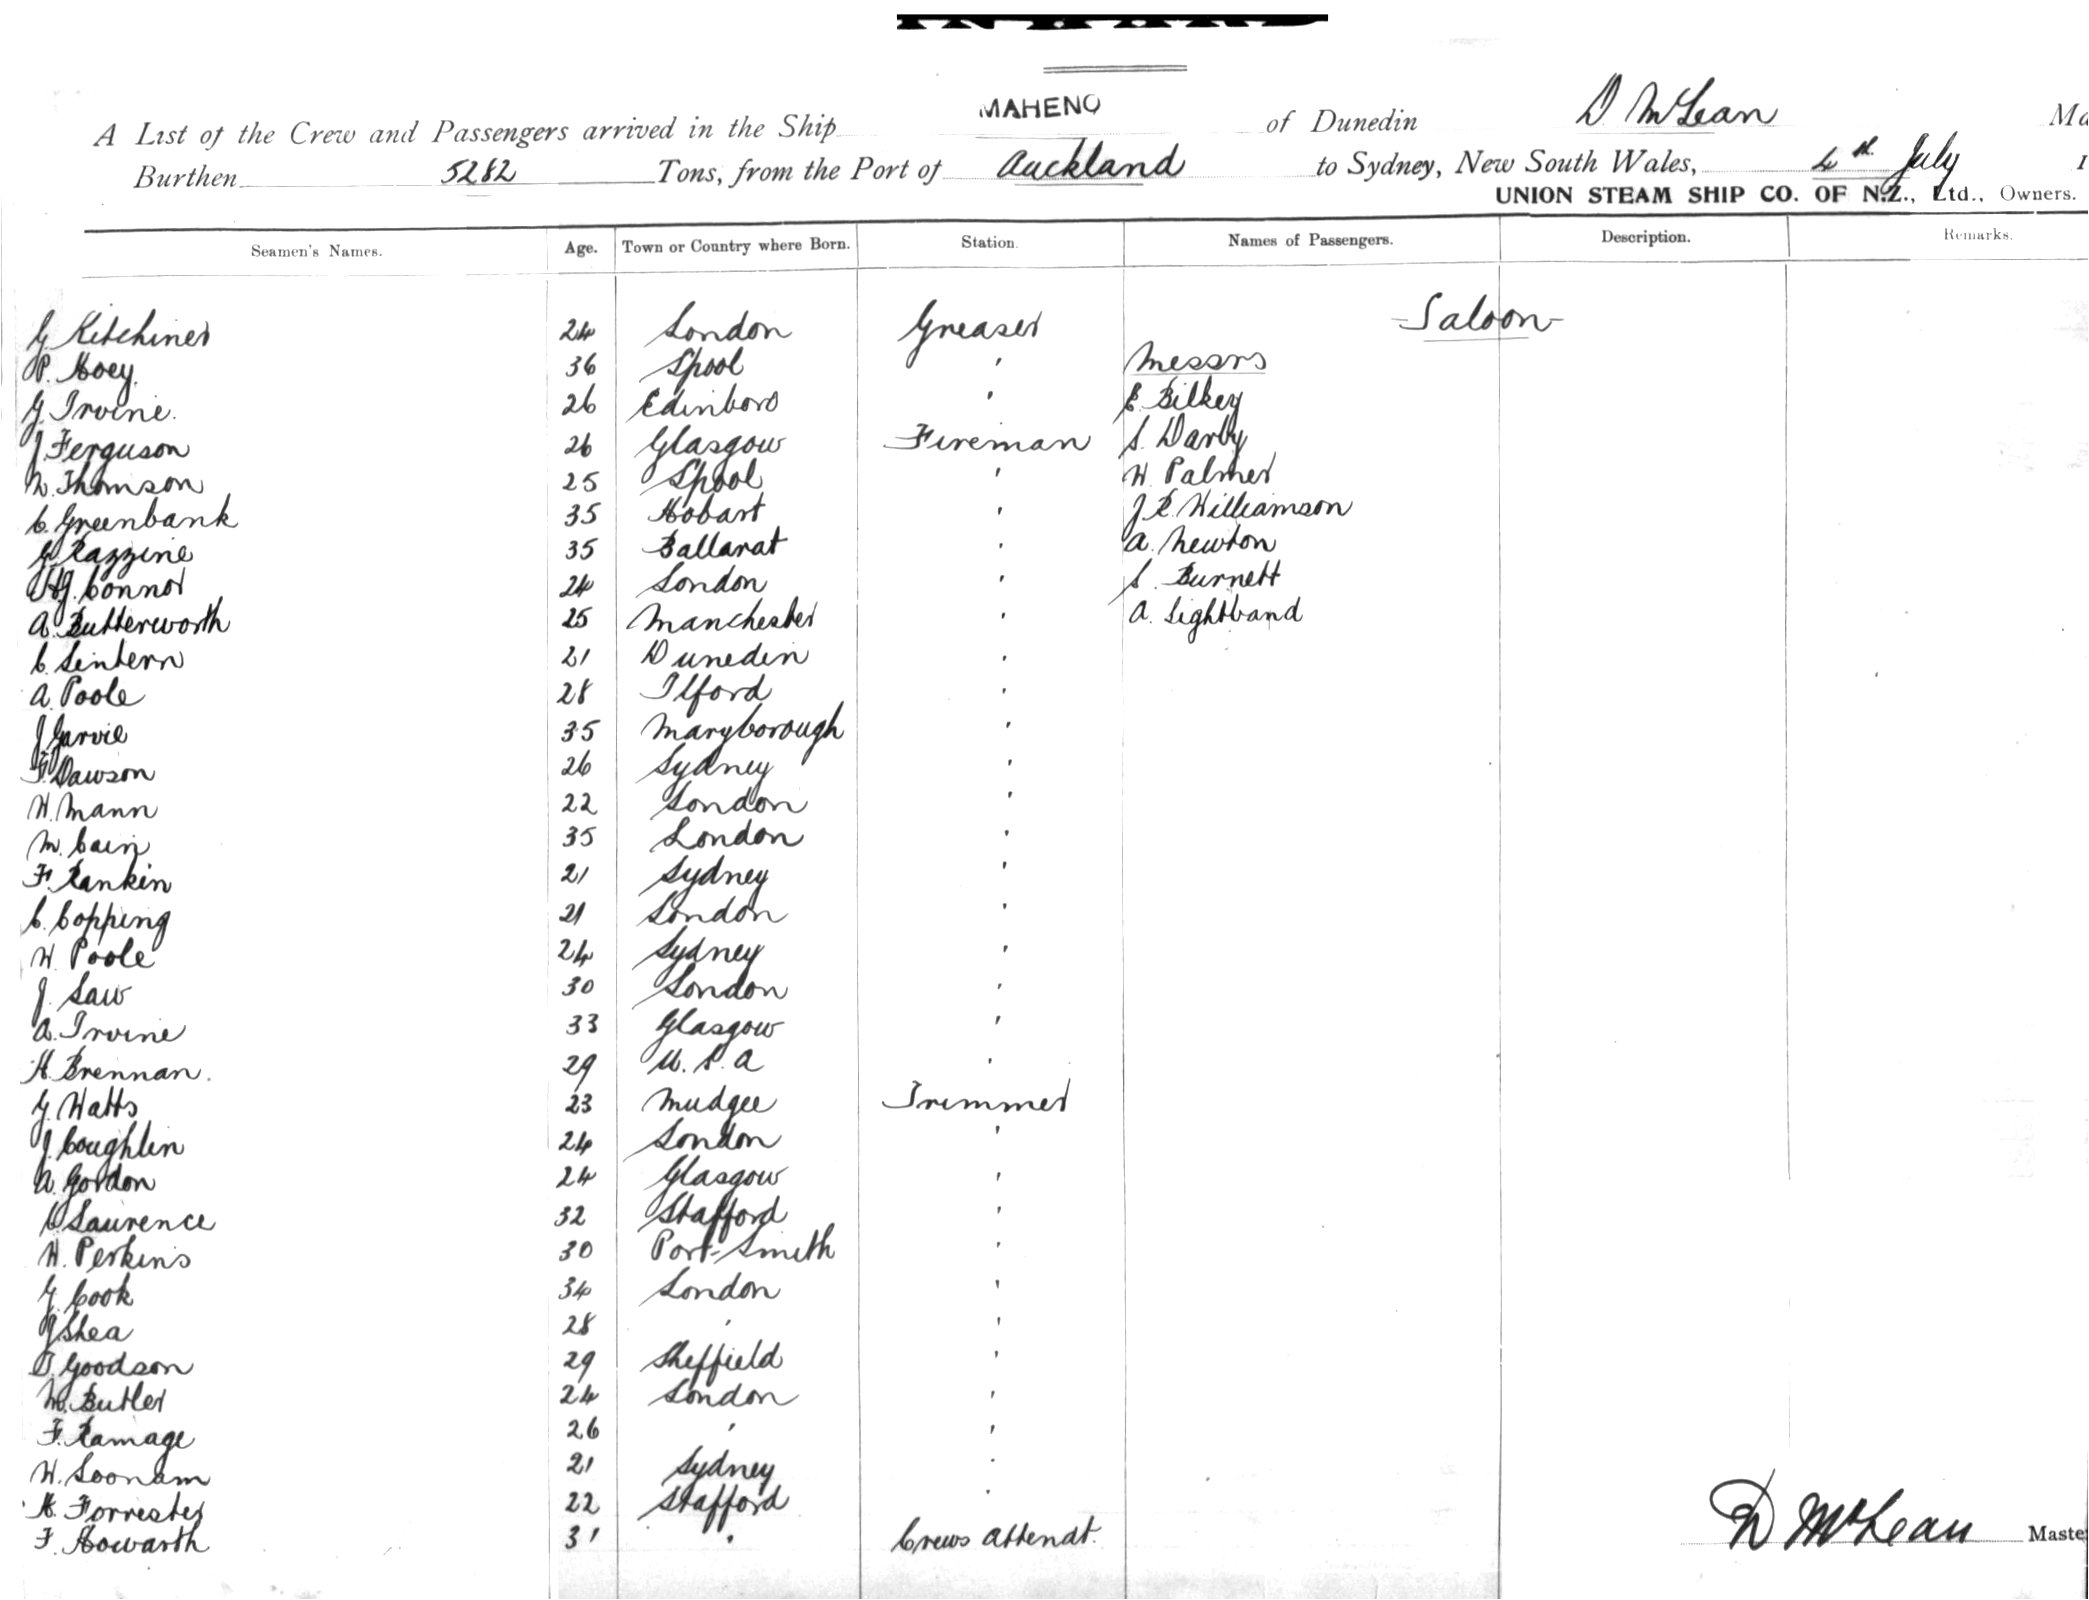 A List of the Crew and Passengers arrived in the Ship MAHENO of Dunedin D McLean
Burthen 5282 Tons, from the Port of Auckland to Sydney, New South Wales, 4th July
UNION STEAM SHIP CO. OF N.Z., Ltd., Owners.
Seamen's Names. Age. Town or Country where Born. Station. Names of Passengers. Description. Remarks.
Saloon
G Kitchiner 24 London Greaser
P. Hoey 36 Lpool ' Messrs
G Irvine. 26 Edinboro ' E Bilkey
J Ferguson 26 Glasgow Fireman S. Darby
W. Thomson 25 Lpool ' W Palmer
C. Greenbank 35 Hobart ' J R. Williamson
G Razzine 35 Ballarat ' A. Newton
Connor 24 London ' S. Burnett
A. Butterworth 25 Manchester ' A. Lightband
C. Lintern 21 Dunedin '
A. Poole 28 Ilford '
J Garvie 35 Maryborough '
F. Dawson 26 Sydney '
W. Mann 22 London '
M. Cain 35 London '
F. Rankin 21 Sydney '
C. Copping 21 London '
W. Poole 24 Sydney '
J. Law 30 London '
A. Irvine 33 Glasgow '
H. Brennan. 29 U.S.A '
G. Watts 23 Mudgee Trimmer
J. Coughlin 24 London '
A. Gordon 24 Glasgow '
Laurence 32 Stafford '
W. Perkins 30 Port-Smith '
G. Cook 34 London '
J Shea 28 ' '
Goodson 29 Sheffield '
W. Butler 24 London '
F. Ramage 26 ' '
W. Loonam 21 Sydney '
H. Forrester 22 Stafford '
F. Howarth 31 ' Crews Attendt.
D McLean Master